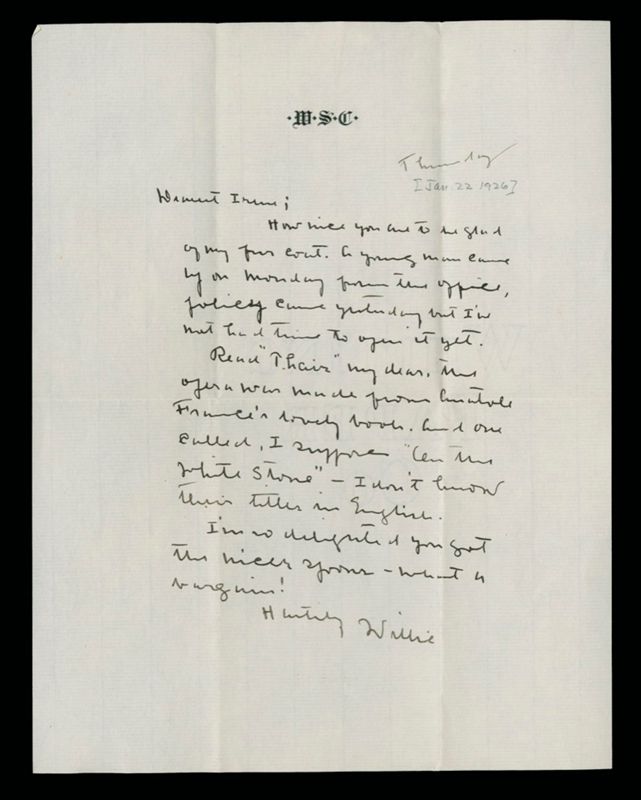 ·W·S·C·
Thursday
[Jan. 22 1926]
Dearest Irene;
How nice you are to be glad
of my fur coat. A young man came
up on Monday from the office,
policy came yesterday but I've
not had time to open it yet.
Read "Thais" my dear. The
opera was made from Anatole
France's lovely book. And one
called, I suppose "On the
White Stone" – I don't know
their titles in English.
I'm so delighted you got
the nice spoons – what a
bargain!
Hastily
Willie